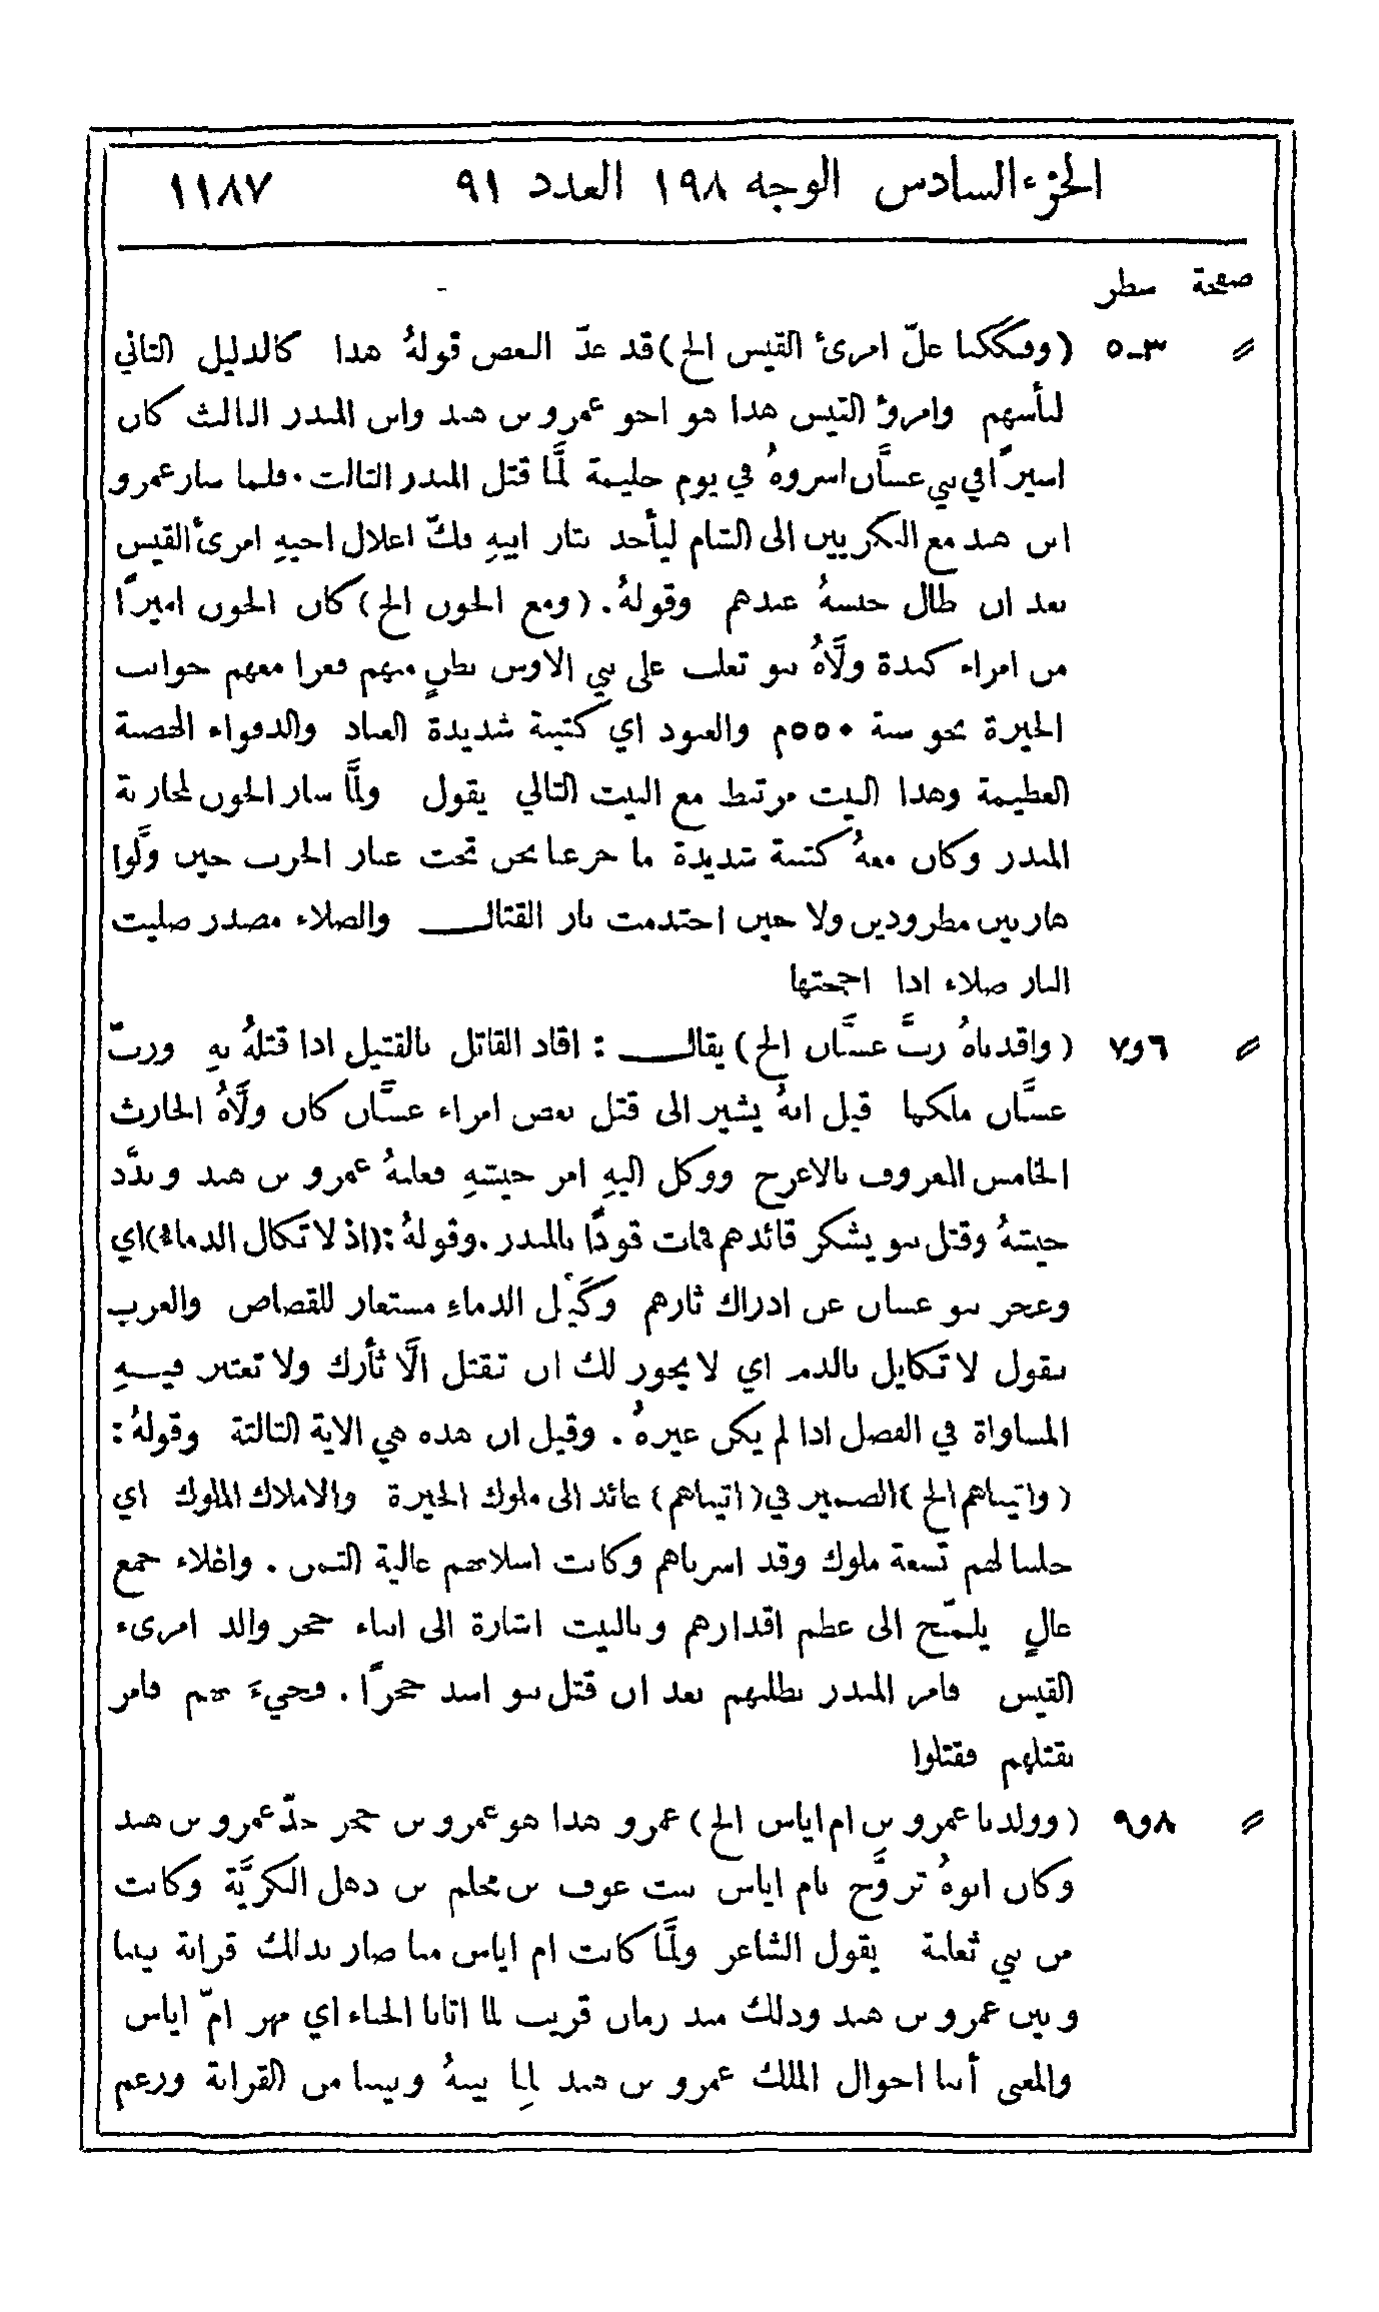 الجزء السادس الوجه ١٩٨ العدد ٩١ ١١٨٧
صفحة سطر
〃 ٣-٥ (وفككنا غلّ امرئ القيس الخ) قد عدّ البعض قولهُ هذا كالدليل الثاني
لبأسهم وامرؤ القيس هذا هو اخو عمرو بن هند وابن المنذر الثالث كان
اسيرًا في بني غسَّان اسروهُ في يوم حليمة لمَّا قتل المنذر الثالث. فلما سار عمرو
ابن هند مع البكريين الى الشام ليأخذ بثار ابيهِ فكّ اغلال اخيهِ امرئ القيس
بعد ان طال حبسهُ عندهم وقولهُ. (ومع الجون الخ) كان الجون اميرًا
من امراء كندة ولَّاهُ بنو تغلب على بني الاوس بطنٍ منهم فغزا معهم جوانب
الحيرة نحو سنة ٥٥٠م والعنود اي كتيبة شديدة العناد والدفواء الخصبة
العظيمة وهذا البيت مرتبط مع البيت التالي يقول ولمَّا سار الجون لمحاربة
المنذر وكان معهُ كتيبة شديدة ما جزعنا نحن تحت غبار الحرب حين ولَّوا
هاربين مطرودين ولا حين احتدمت نار القتال والصلاء مصدر صليت
النار صلاء اذا اججتها
〃 ٦و٧ (واقدناهُ ربَّ غسَّان الخ) يقال : اقاد القاتل بالقتيل اذا قتلهُ بهِ وربّ
غسَّان ملكها قيل انهُ يشير الى قتل بعض امراء غسَّان كان ولَّاهُ الحارث
الخامس المعروف بالاعرج ووكل اليهِ امر جيشهِ فغلبهُ عمرو بن هند وبدَّد
جيشهُ وقتل بنو يشكر قائدهم فمات قودًا بالمنذر. وقولهُ: (اذ لا تكال الدماءُ) اي
وعجز بنو غسان عن ادراك ثارهم وكَيْل الدماءِ مستعار للقصاص والعرب
تقول لا تكايل بالدم اي لا يجوز لك ان تقتل الَّا ثأرك ولا تعتبر فيهِ
المساواة في الفضل اذا لم يكن غيرهُ. وقيل ان هذه هي الاية الثالثة وقولهُ:
(واتيناهم الخ) الضمير في (اتيناهم) عائد الى ملوك الحيرة والاملاك الملوك اي
جلبنا لهم تسعة ملوك وقد اسرناهم وكانت اسلابهم غالية الثمن. واغلاء جمع
غالٍ يلمّح الى عظم اقدارهم وبالبيت اشارة الى ابناء حجر والد امرىء
القيس فامر المنذر بطلبهم بعد ان قتل بنو اسد حجرًا. فجيءَ بهم فامر
بقتلهم فقتلوا
〃 ٨و٩ (وولدنا عمرو بن ام اياس الخ) عمرو هذا هو عمرو بن حجر جدّ عمرو بن هند
وكان ابوهُ تزوَّج بام اياس بنت عوف بن محلم بن ذهل البكريَّة وكانت
من بني ثعلبة يقول الشاعر ولمَّا كانت ام اياس منا صار بذلك قرابة بيننا
وبين عمرو بن هند وذلك منذ زمان قريب لما اتانا الحباء اي مهر امّ اياس
والمعنى أننا اخوال الملك عمرو بن هند لِما بينهُ وبيننا من القرابة وزعم